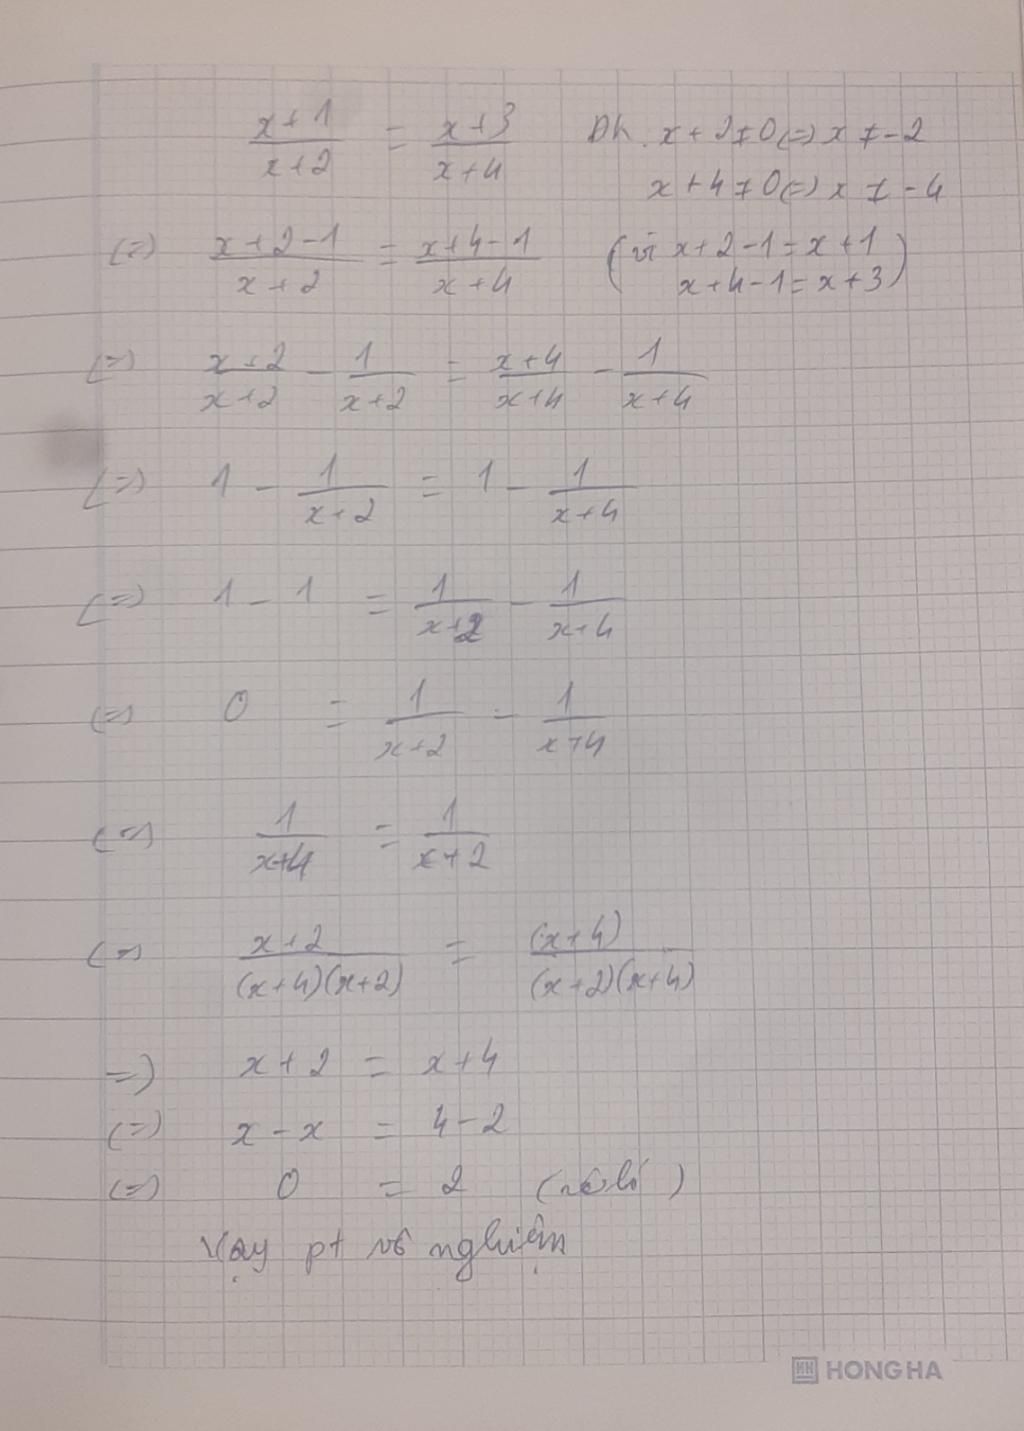 x+1/x+2 = x+3/x+4 ĐK. x+2≠0(=) x ≠-2
x+4≠0(=) x ≠ -4
(=) x+2-1/x+2 = x+4-1/x+4 (vì x+2-1=x+1
x+4-1=x+3)
(=) x+2/x+2 - 1/x+2 = x+4/x+4 - 1/x+4
(=) 1 - 1/x+2 = 1 - 1/x+4
(=) 1 - 1 = 1/x+2 - 1/x+4
(=) 0 = 1/x+2 - 1/x+4
(=) 1/x+4 = 1/x+2
(=) x+2/(x+4)(x+2) = (x+4)/(x+2)(x+4)
=) x+2 = x+4
(=) x-x = 4-2
(=) 0 = 2 (vô lí)
Vậy pt vô nghiệm
HONG HA